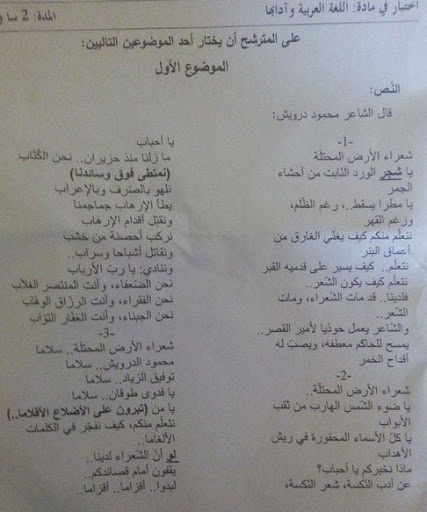 اختبار في مادة: اللغة العربية وآدابها
المدة: 2 سا و
على المترشح أن يختار أحد الموضوعين التاليين:
الموضوع الأول
النّص:
قال الشاعر محمود درويش:
-1-
شعراء الأرض المحتلّة
يا شجر الورد النّابت من أحشاء
الجمر
يا مطرا يسقط.. رغم الظّلم،
ورغم القهر
نتعلّم منكم كيف يغنّي الغارق من
أعماق البئر
نتعلّم.. كيف يسير على قدميه القبر
نتعلّم كيف يكون الشّعر..
فلدينا.. قد مات الشّعراء، ومات
الشّعر..
والشّاعر يعمل حوذيا لأمير القصر..
يمسح للحاكم معطفه، ويصبّ له
أقداح الخمر
-2-
شعراء الأرض المحتلّة..
يا ضوء الشّمس الهارب من ثقب
الأبواب
يا كلّ الأسماء المحفورة في ريش
الأهداب
ماذا نخبركم يا أحباب؟
عن أدب النّكسة، شعر النّكسة،
يا أحباب
ما زلنا منذ حزيران.. نحن الكتّاب
(نمتطي فوق وسائدنا)
نلهو بالصّرف وبالإعراب
يطأ الإرهاب جماجمنا
ونقبّل أقدام الإرهاب
نركب أحصنة من خشب
ونقاتل أشباحا وسراب..
وننادي: يا ربّ الأرباب
نحن الضّعفاء، وأنت المنتصر الغلاّب
نحن الفقراء، وأنت الرزاق الوهّاب
نحن الجبناء، وأنت الغفّار التوّاب
-3-
شعراء الأرض المحتلّة.. سلاما
محمود الدرويش.. سلاما
توفيق الزياد.. سلاما
يا فدوى طوقان.. سلاما
يا من (تبرون على الأضلاع الأقلاما..)
نتعلّم منكم، كيف نفجّر في الكلمات
الألغاما..
لو أنّ الشّعراء لدينا..
يقفون أمام قصائدكم..
لبدوا.. أقزاما.. أقزاما..